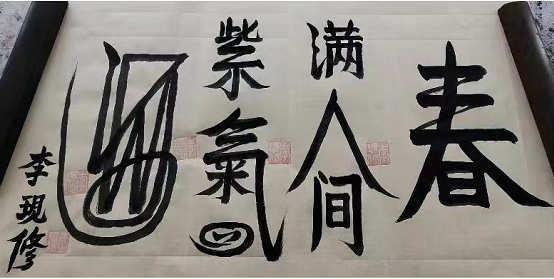 春
满人间
紫氣
李現修